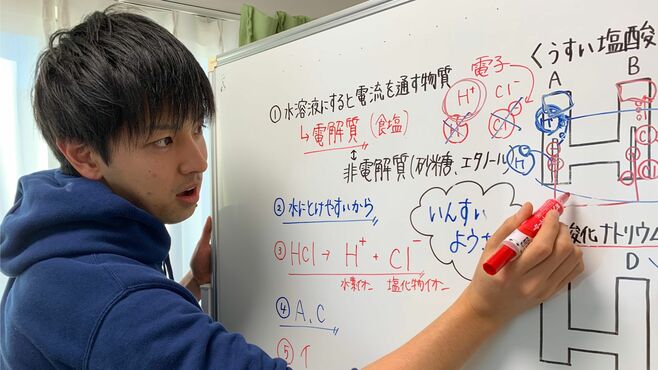 ① 水溶液にすると電流を通す物質
↳ 電解質 (食塩)
↕
非電解質(砂糖、エタノール)
② 水にとけやすいから
③ HCl → H⁺ + Cl⁻
水素イオン 塩化物イオン
④ A, C
⑤ ↑
電子
H⁺ Cl⁻
H Cl
いんすい
よう
くうすい塩酸
A B
H
酸化ナトリウム
D